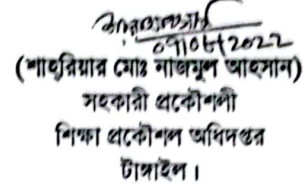 ০৭/০৮/২০২২
(শাহরিয়ার মোঃ নাজমুল আহসান)
সহকারী প্রকৌশলী
শিক্ষা প্রকৌশল অধিদপ্তর
টাঙ্গাইল।